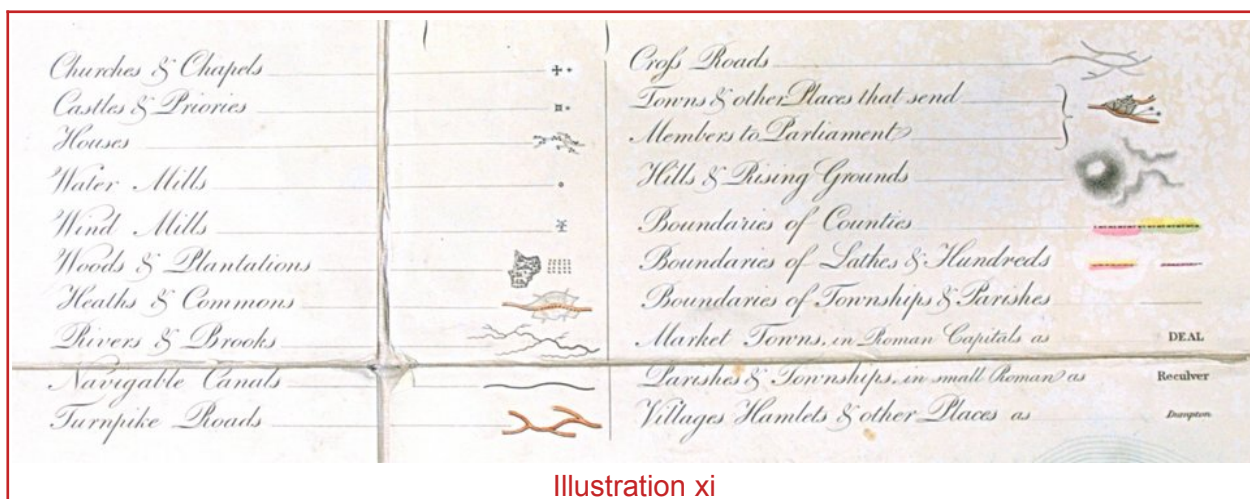 Churches & Chapels
Castles & Priories
Houses
Water Mills
Wind Mills
Woods & Plantations
Heaths & Commons
Rivers & Brooks
Navigable Canals
Turnpike Roads
Croſs Roads
Towns & other Places that send
Members to Parliament
Hills & Rising Grounds
Boundaries of Counties
Boundaries of Lathes & Hundreds
Boundaries of Townships & Parishes
Market Towns, in Roman Capitals as DEAL
Parishes & Townships, in small Roman as Reculver
Villages Hamlets & other Places as Dumpton
Illustration xi